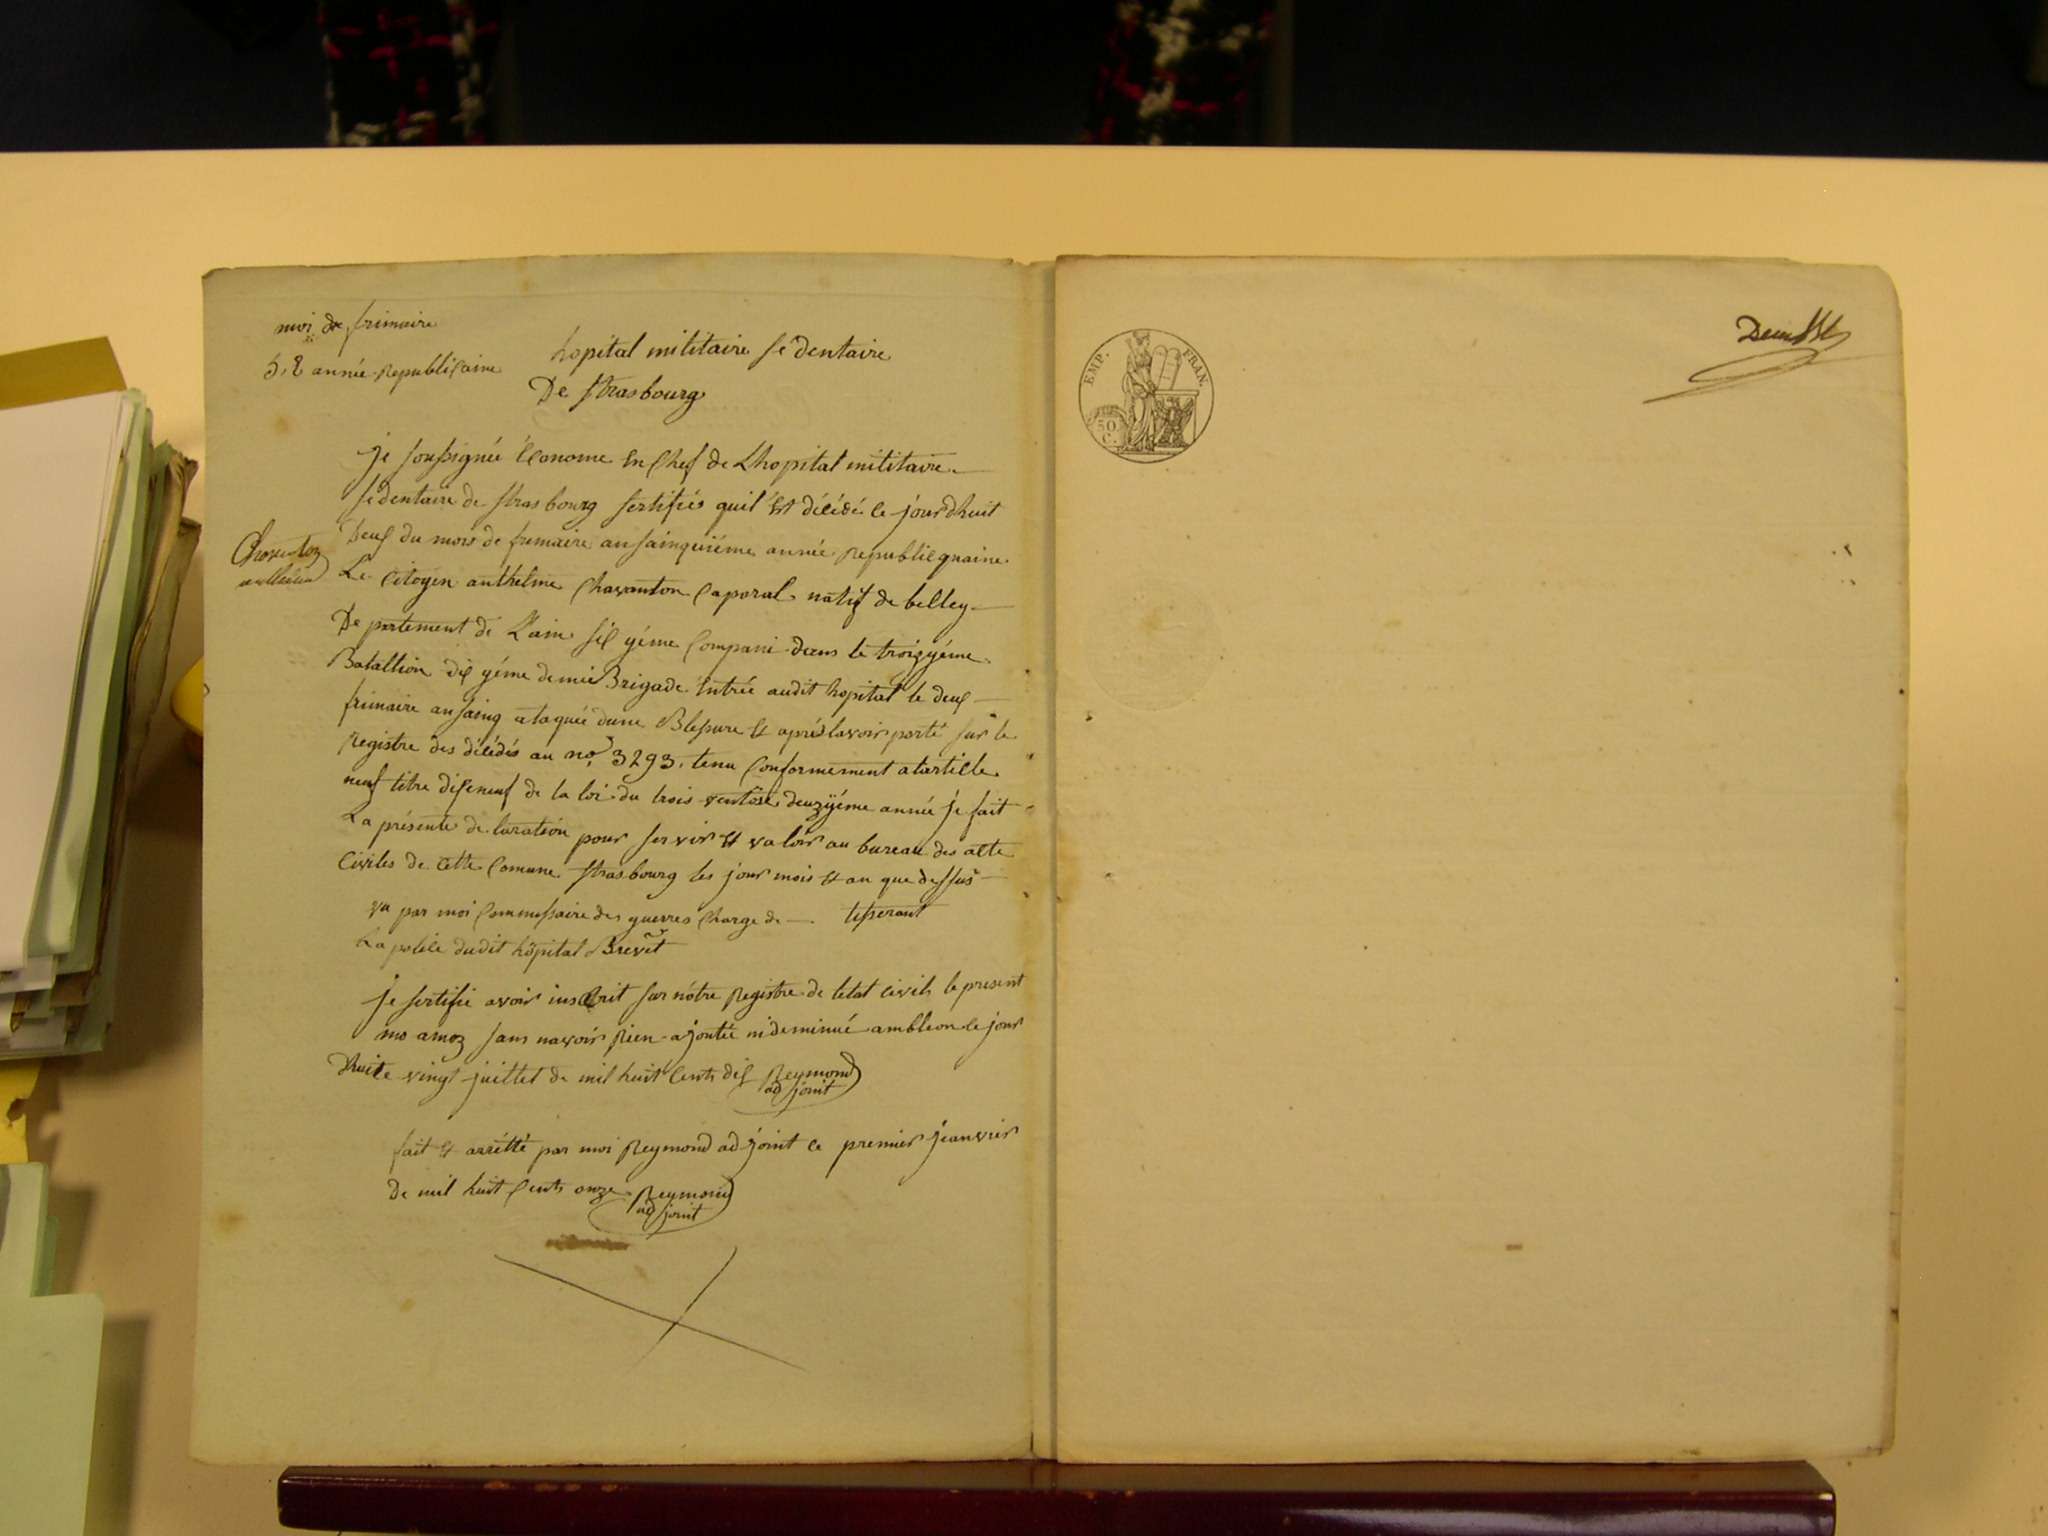 moi de frimaire
5.e année republicaine
hopital militaire sedentaire
De strasbourg
je soussignée économe en chef de Lhopital militaire
sedentaire de strasbourg sertifiés quil est décédé ce jourdhuit
Deux du mois de frimaire an sainquiéme année republicquaine
Le Citoyen anthelme Chavanton Caporal natif de belley
De partement de L'ain six yéme Compani dans le troizyéme
Batallion dix yéme demie Brigade Entrée audit hopital le deux
frimaire an saing ataquée dune Blessure et aprés lavoir porté sur le
Registre des décédés au no. 3293. tenu Conformement a lartille
neuf titre dixneuf de la loi du trois ventôse deuzyéme année je fait
La présente de laration pour ser vir et valoir au bureau des acte
Civiles de cette Comune strasbourg les jour mois et an que dessus
vu par moi Commissaire des guerres Charge de tisserant
La police dudit hôpital Brevet
je sertifie avoir inscrit sur nôtre Registre de letat civil le present
sans navoir Rien ajoutée ni deminué ambleon ce jour
Dhuit vingt juillet de mil huit Cents dix Reymond
adjoint
fait et arrétté par moi Reymond adjoint ce premier jeanvier
De mil huit Cents onze Reymond
adjoint
EMP. FRAN.
50
C.